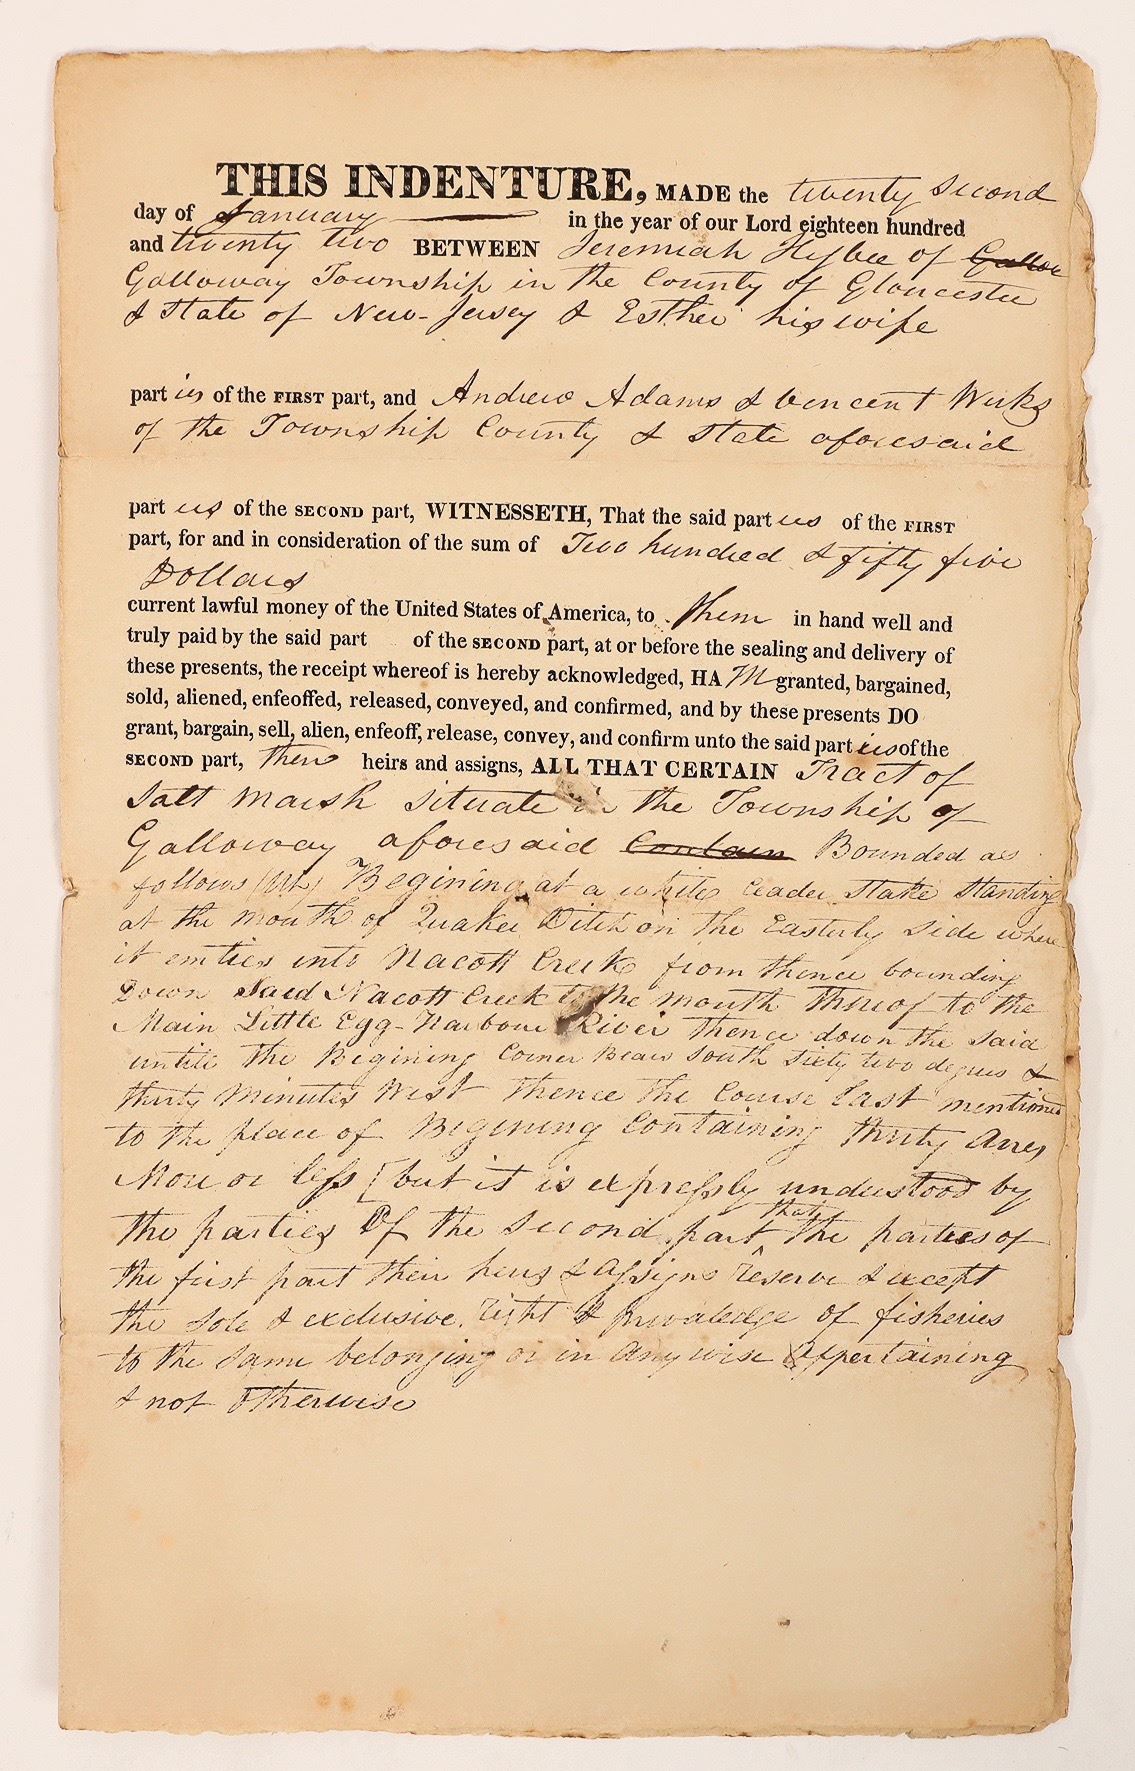 THIS INDENTURE, MADE the twenty Second
day of January in the year of our Lord eighteen hundred
and twenty two BETWEEN Jeremiah Higbee of Gallow
Galloway Township in the County of Gloucester
& State of New-Jersey & Esther his wife
part ies of the FIRST part, and Andrew Adams & Vincent Weeks
of the Township County & State aforesaid
part ies of the SECOND part, WITNESSETH, That the said part ies of the FIRST
part, for and in consideration of the sum of Two hundred & fifty five
Dollars
current lawful money of the United States of America, to them in hand well and
truly paid by the said part of the SECOND part, at or before the sealing and delivery of
these presents, the receipt whereof is hereby acknowledged, HA granted, bargained,
sold, aliened, enfeoffed, released, conveyed, and confirmed, and by these presents DO
grant, bargain, sell, alien, enfeoff, release, convey, and confirm unto the said part ies of the
SECOND part, their heirs and assigns, ALL THAT CERTAIN Tract of
Salt Marsh Situate in the Township of
Galloway aforesaid Contain Bounded as
follows (viz) Begining at a white Ceader Stake Standing
at the mouth of Quaker Ditch on the Easterly Side where
it emties into Nacott Creek from thence bounding
Down Said Nacott Creek to the mouth Thereof to the
Main Little Egg-Harbour River thence down the Said
untile the Begining Corner Bears South Sixty two degrees &
thirty Minutes West thence the Course Last mentioned
to the place of Begining Containing thirty Acres
More or less [but it is expressly understood by
the parties Of the Second part that the parties of
the first part their heirs & Assigns reserve & except
the Sole & exclusive right & privaledge of fisheries
to the Same belonging or in Any wise Appertaining
& not Otherwise